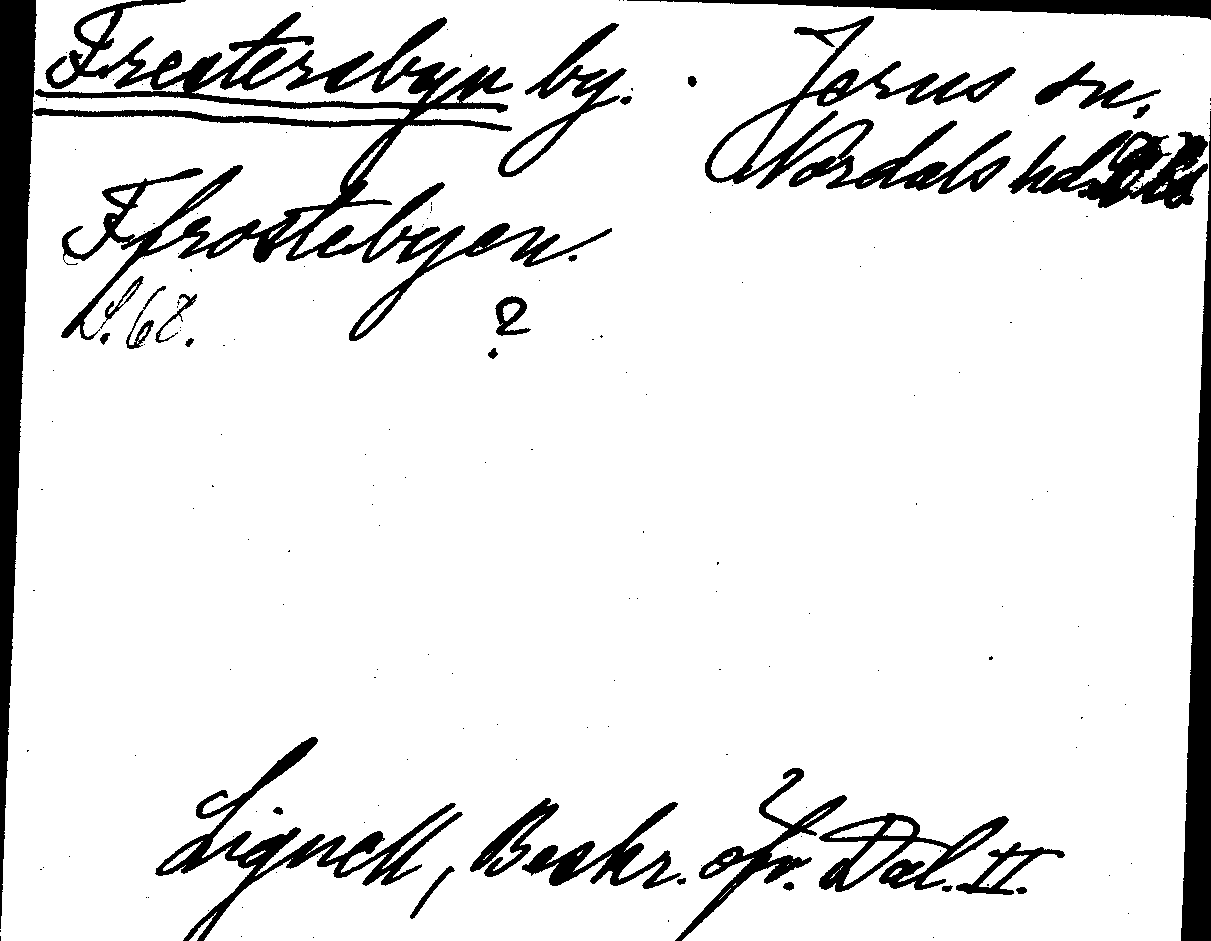 Frestersbyn by. Jerns sn,
Nordals hd.
Ffrostebyen.
S. 68. ?
Lignell, Beskr. öfv. Dal. II.